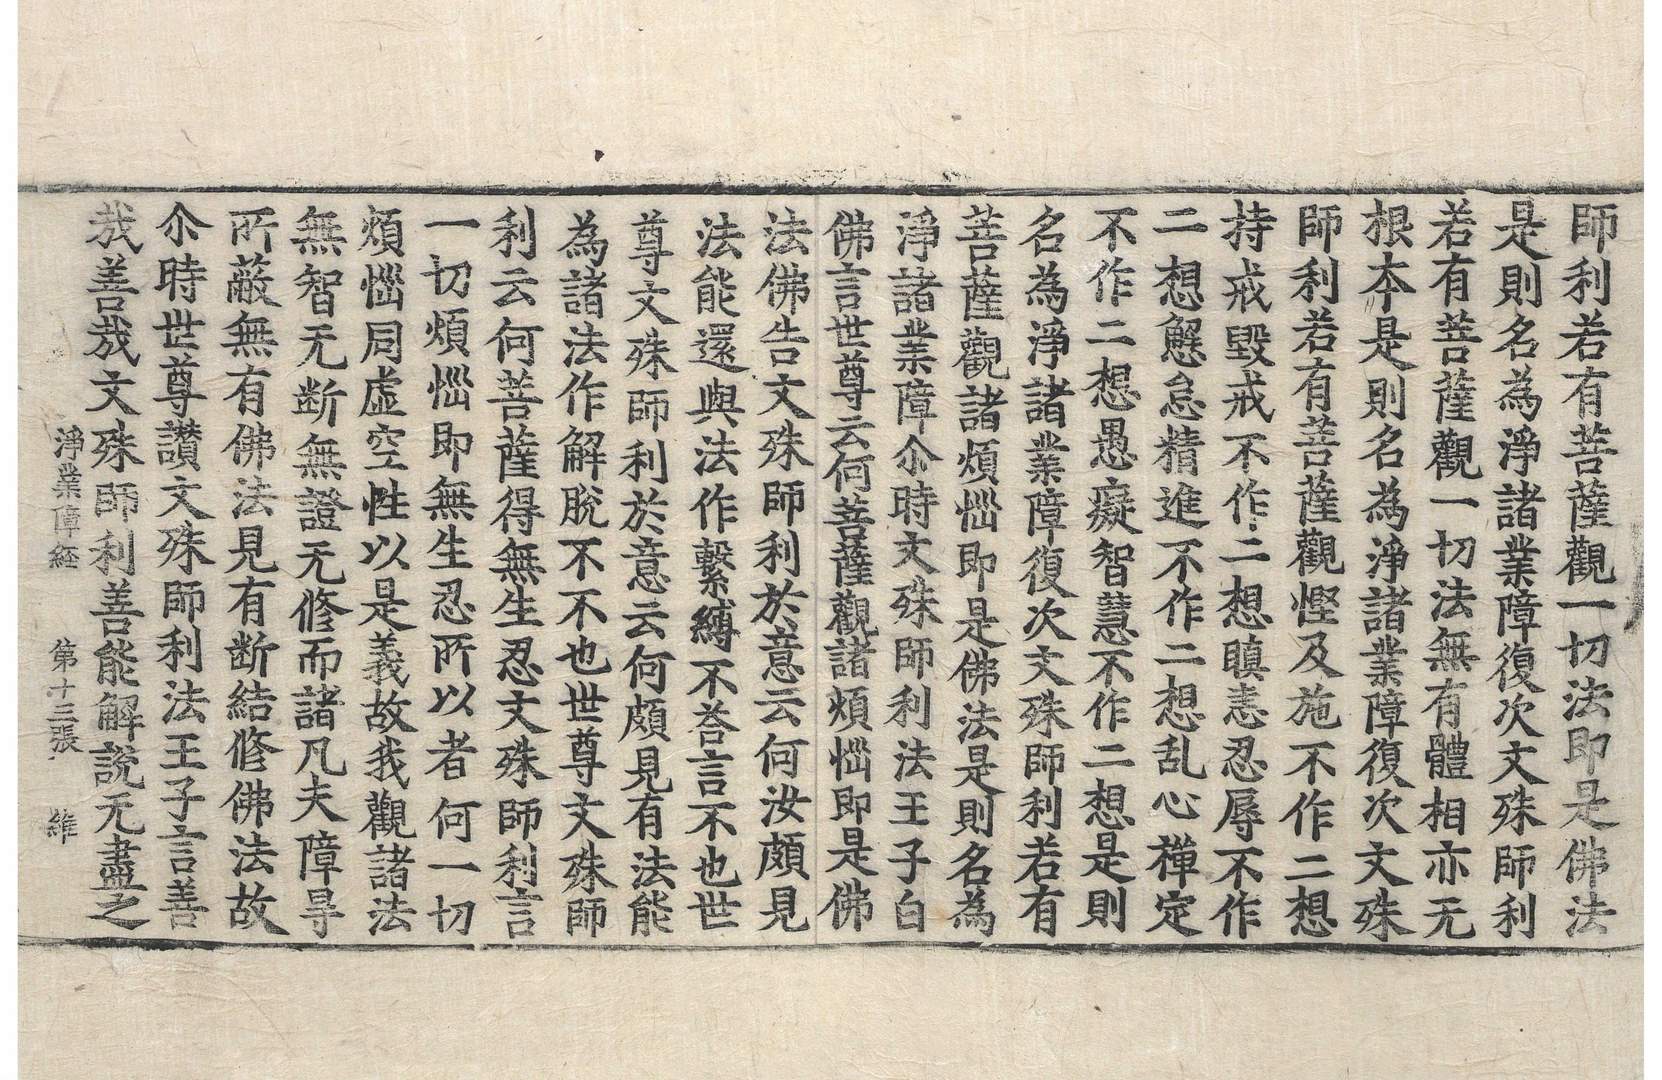 師利若有菩薩觀一切法即是佛法
是則名為淨諸業障復次文殊師利
若有菩薩觀一切法無有體相亦无
根本是則名為淨諸業障復次文殊
師利若有菩薩觀慳及施不作二想
持戒毀戒不作二想瞋恚忍辱不作
二想懈怠精進不作二想乱心禪定
不作二想愚癡智慧不作二想是則
名為淨諸業障復次文殊師利若有
菩薩觀諸煩惱即是佛法是則名為
淨諸業障尒時文殊師利法王子白
佛言世尊云何菩薩觀諸煩惱即是佛
法佛告文殊師利於意云何汝頗見
法能還與法作繫縛不荅言不也世
尊文殊師利於意云何頗見有法能
為諸法作解脫不不也世尊文殊師
利云何菩薩得無生忍文殊師利言
一切煩惱即無生忍所以者何一切
煩惱同虛空性以是義故我觀諸法
無智无断無證无修而諸凡夫障㝵
所蔽無有佛法見有断結修佛法故
尒時世尊讃文殊師利法王子言善
㢤善㢤文殊師利善能解說无盡之
淨業障経 第十三張 維